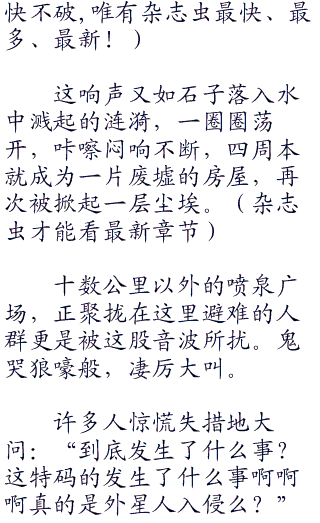 快不破,唯有杂志虫最快、最
多、最新！）
这响声又如石子落入水
中溅起的涟漪，一圈圈荡
开，咔嚓闷响不断，四周本
就成为一片废墟的房屋，再
次被掀起一层尘埃。（杂志
虫才能看最新章节）
十数公里以外的喷泉广
场，正聚拢在这里避难的人
群更是被这股音波所扰。鬼
哭狼嚎般，凄厉大叫。
许多人惊慌失措地大
问：“到底发生了什么事？
这特码的发生了什么事啊啊
啊真的是外星人入侵么？”